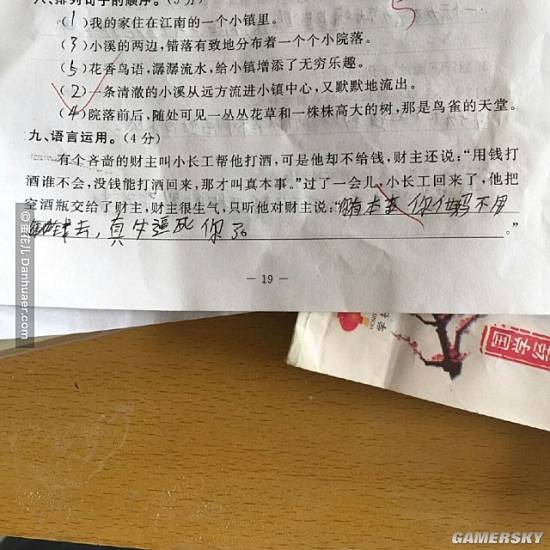 八、排列句子的顺序。(5分)
(1)我的家住在江南的一个小镇里。
(3)小溪的两边,错落有致地分布着一个个小院落。
(5)花香鸟语,潺潺流水,给小镇增添了无穷乐趣。
(2)一条清澈的小溪从远方流进小镇中心,又默默地流出。
(4)院落前后,随处可见一丛丛花草和一株株高大的树,那是鸟雀的天堂。
九、语言运用。(4分)
有个吝啬的财主叫小长工帮他打酒,可是他却不给钱,财主还说:“用钱打
酒谁不会,没钱能打酒回来,那才叫真本事。”过了一会儿,小长工回来了,他把
空酒瓶交给了财主,财主很生气,只听他对财主说:“ 你他妈不用
钱去,真牛逼死你了。”
— 19 —
5
@蛋花儿 Danhuaer.com
GAMERSKY